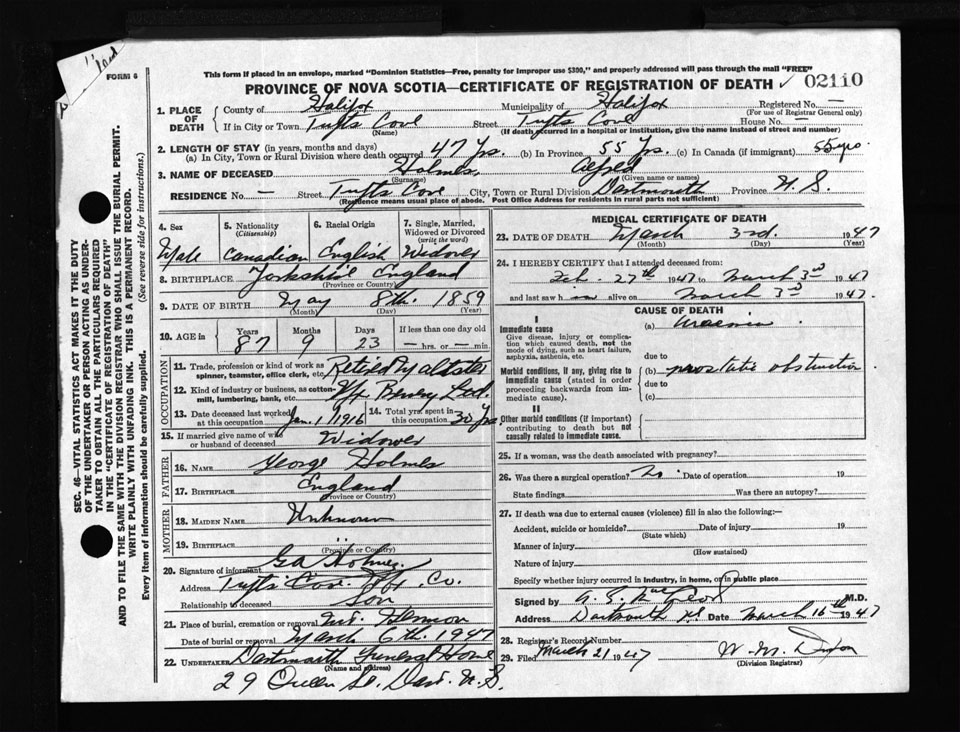 "land"
FORM 6
This form if placed in an envelope, marked "Dominion Statistics—Free, penalty for improper use $300," and properly addressed will pass through the mail "FREE"
PROVINCE OF NOVA SCOTIA—CERTIFICATE OF REGISTRATION OF DEATH ✓ 02110
1. PLACE OF DEATH
County of Halifax Municipality of Halifax Registered No. —
(For use of Registrar General only)
If in City or Town Tufts Cove Street Tufts Cove House No. —
(Name) (If death occurred in a hospital or institution, give the name instead of street and number)
2. LENGTH OF STAY (in years, months and days)
(a) In City, Town or Rural Division where death occurred 47 Yrs. (b) In Province 55 Yrs. (c) In Canada (if immigrant) 55 yrs.
3. NAME OF DECEASED Holmes, Alfred
(Surname) (Given name or names)
RESIDENCE No — Street Tufts Cove City, Town or Rural Division Dartmouth Province N. S.
(Residence means usual place of abode. Post Office Address for residents in rural parts not sufficient)
4. Sex Male
5. Nationality (Citizenship) Canadian
6. Racial Origin English
7. Single, Married, Widowed or Divorced (write the word) Widower
8. BIRTHPLACE Yorkshire England
(Province or Country)
9. DATE OF BIRTH May 8th. 1859
(Month) (Day) (Year)
10. AGE in Years 87 Months 9 Days 23 If less than one day old — hrs. or — min.
OCCUPATION
11. Trade, profession or kind of work as spinner, teamster, office clerk, etc. Retired Maltster
12. Kind of industry or business, as cotton-mill, lumbering, bank, etc. Hfx Brewery Ltd.
13. Date deceased last worked at this occupation Jan. 1, 1916
14. Total yrs. spent in this occupation 30 Yrs
15. If married give name of wife or husband of deceased Widower
FATHER
16. NAME George Holmes
17. BIRTHPLACE England
(Province or Country)
MOTHER
18. MAIDEN NAME Unknown
19. BIRTHPLACE
(Province or Country)
20. Signature of informant G A Holmes
Address Tufts Cove Hfx. Co.
Relationship to deceased Son
21. Place of burial, cremation or removal Mt. Hermon
Date of burial or removal March 6th. 1947
22. UNDERTAKER Dartmouth Funeral Home
(Name and address)
29 Queen St. Dart. N.S.
MEDICAL CERTIFICATE OF DEATH
23. DATE OF DEATH March 3rd. 1947
(Month) (Day) (Year)
24. I HEREBY CERTIFY that I attended deceased from:
Feb. 27th 1947 to March 3rd 1947
and last saw him alive on March 3rd 1947.
CAUSE OF DEATH
I
Immediate cause
Give disease, injury or complication which caused death, not the mode of dying, such as heart failure, asphyxia, asthenia, etc.
(a) Uraemia
due to
Morbid conditions, if any, giving rise to immediate cause (stated in order proceeding backwards from immediate cause).
(b) prostatic obstruction
due to
(c)
II
Other morbid conditions (if important) contributing to death but not causally related to immediate cause.
25. If a woman, was the death associated with pregnancy?
26. Was there a surgical operation? No. Date of operation 19
State findings Was there an autopsy?
27. If death was due to external causes (violence) fill in also the following:—
Accident, suicide or homicide? Date of injury 19
(State which)
Manner of injury
(How sustained)
Nature of injury
Specify whether injury occurred in industry, in home, or in public place
Signed by M.D.
Address Dartmouth N.S. Date March 16th 1947
28. Registrar's Record Number
29. Filed March 21 1947 W. M. Dixon
(Division Registrar)
SEC. 46—VITAL STATISTICS ACT MAKES IT THE DUTY
OF THE UNDERTAKER OR PERSON ACTING AS UNDERTAKER TO OBTAIN ALL THE PARTICULARS REQUIRED
IN THE "CERTIFICATE OF REGISTRATION OF DEATH"
AND TO FILE THE SAME WITH THE DIVISION REGISTRAR WHO SHALL ISSUE THE BURIAL PERMIT.
WRITE PLAINLY WITH UNFADING INK. THIS IS A PERMANENT RECORD.
Every item of information should be carefully supplied. (See reverse side for instructions.)